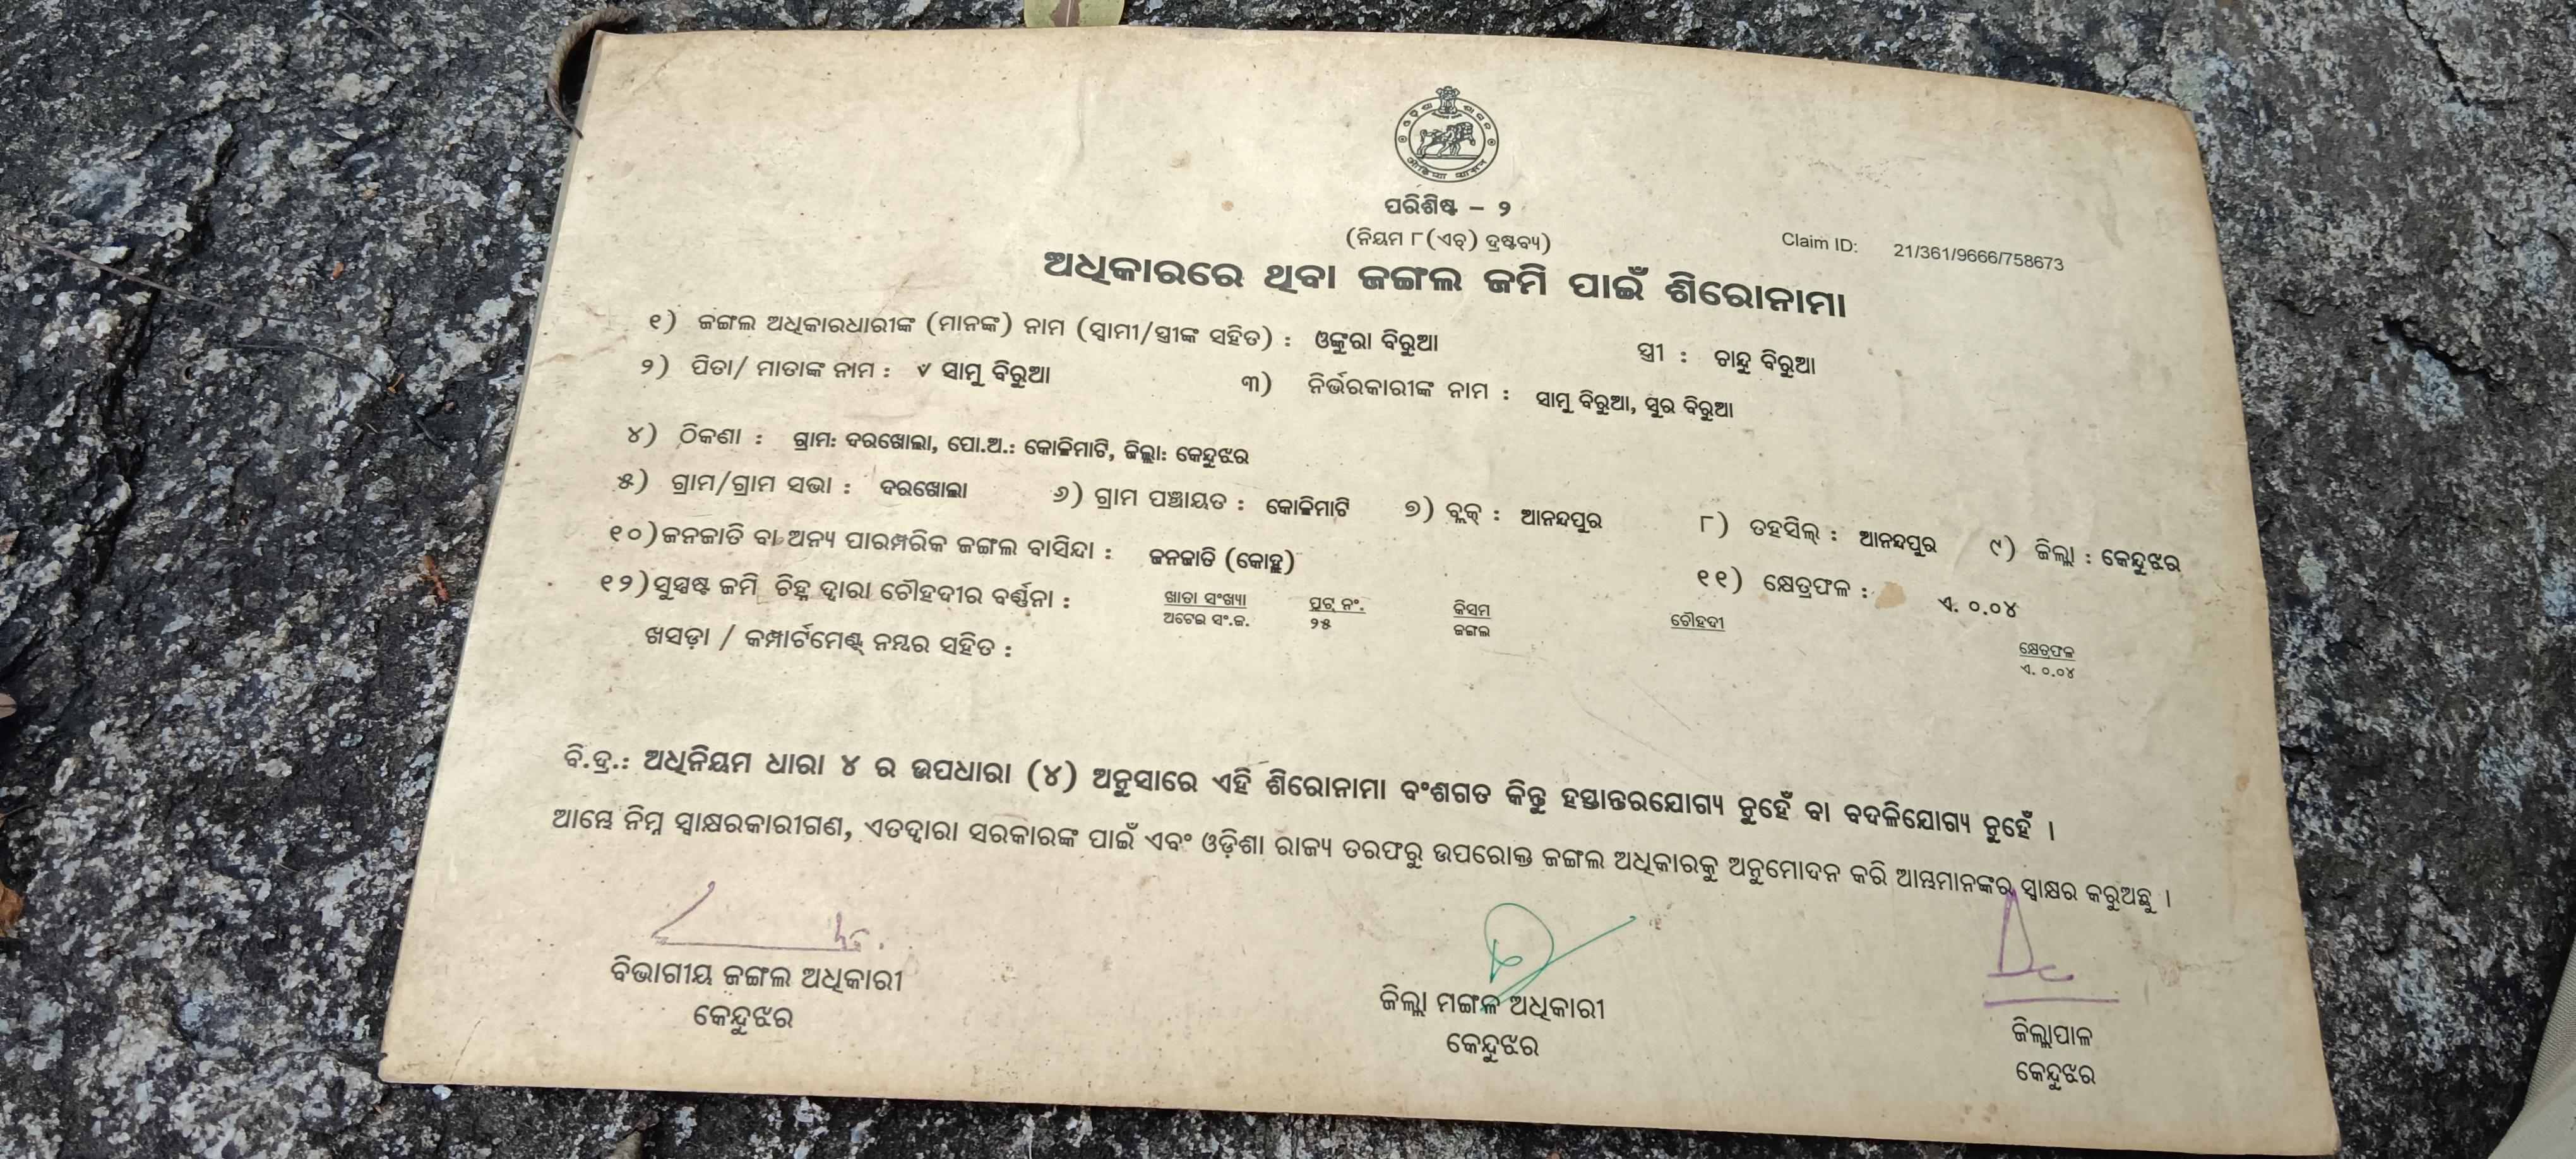 ପରିଶିଷ୍ଟ – ୨
(ନିୟମ ୮(ଏଚ୍) ଦ୍ରଷ୍ଟବ୍ୟ)
Claim ID: 21/361/9666/758673
ଅଧିକାରରେ ଥିବା ଜଙ୍ଗଲ ଜମି ପାଇଁ ଶିରୋନାମା
୧) ଜଙ୍ଗଲ ଅଧିକାରଧାରୀଙ୍କ (ମାନଙ୍କ) ନାମ (ସ୍ୱାମୀ/ସ୍ତ୍ରୀଙ୍କ ସହିତ) : ଓଙ୍କୁରା ବିରୁଆ ସ୍ତ୍ରୀ : ଚାନ୍ଦୁ ବିରୁଆ
୨) ପିତା/ ମାତାଙ୍କ ନାମ : ସାମୁ ବିରୁଆ ୩) ନିର୍ଭରକାରୀଙ୍କ ନାମ : ସାମୁ ବିରୁଆ, ସୁର ବିରୁଆ
୪) ଠିକଣା : ଗ୍ରାମ: ଦରଖୋଲା, ପୋ.ଅ.: କୋଳିମାଟି, ଜିଲ୍ଲା: କେନ୍ଦୁଝର
୫) ଗ୍ରାମ/ଗ୍ରାମ ସଭା : ଦରଖୋଲା ୬) ଗ୍ରାମ ପଞ୍ଚାୟତ : କୋଳିମାଟି ୭) ବ୍ଲକ୍ : ଆନନ୍ଦପୁର ୮) ତହସିଲ୍ : ଆନନ୍ଦପୁର ୯) ଜିଲ୍ଲା : କେନ୍ଦୁଝର
୧୦)ଜନଜାତି ବା ଅନ୍ୟ ପାରମ୍ପରିକ ଜଙ୍ଗଲ ବାସିନ୍ଦା : ଜନଜାତି (କୋହ୍ଲ) ୧୧) କ୍ଷେତ୍ରଫଳ : ଏ. ୦.୦୪
୧୨)ସୁସ୍ପଷ୍ଟ ଜମି ଚିହ୍ନ ଦ୍ୱାରା ଚୌହଦୀର ବର୍ଣ୍ଣନା : ଖାତା ସଂଖ୍ୟା ପ୍ଲଟ୍ ନଂ. କିସମ ଚୌହଦୀ କ୍ଷେତ୍ରଫଳ
ଖସଡ଼ା / କମ୍ପାର୍ଟମେଣ୍ଟ୍ ନମ୍ବର ସହିତ : ଅଟେଇ ସଂ.ଜ. ୨୫ ଜଙ୍ଗଲ ଏ. ୦.୦୪
ବି.ଦ୍ର.: ଅଧିନିୟମ ଧାରା ୪ ର ଉପଧାରା (୪) ଅନୁସାରେ ଏହି ଶିରୋନାମା ବଂଶଗତ କିନ୍ତୁ ହସ୍ତାନ୍ତରଯୋଗ୍ୟ ନୁହେଁ ବା ବଦଳିଯୋଗ୍ୟ ନୁହେଁ ।
ଆମ୍ଭେ ନିମ୍ନ ସ୍ୱାକ୍ଷରକାରୀଗଣ, ଏତଦ୍ୱାରା ସରକାରଙ୍କ ପାଇଁ ଏବଂ ଓଡ଼ିଶା ରାଜ୍ୟ ତରଫରୁ ଉପରୋକ୍ତ ଜଙ୍ଗଲ ଅଧିକାରକୁ ଅନୁମୋଦନ କରି ଆମ୍ଭମାନଙ୍କର ସ୍ୱାକ୍ଷର କରୁଅଛୁ ।
ବିଭାଗୀୟ ଜଙ୍ଗଲ ଅଧିକାରୀ
କେନ୍ଦୁଝର
ଜିଲ୍ଲା ମଙ୍ଗଳ ଅଧିକାରୀ
କେନ୍ଦୁଝର
ଜିଲ୍ଲାପାଳ
କେନ୍ଦୁଝର